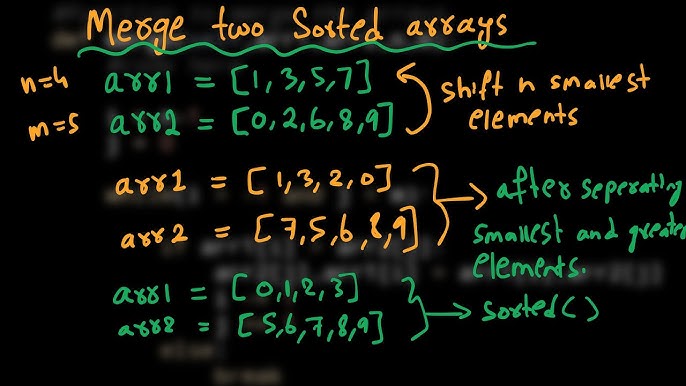 Merge two Sorted arrays
n=4 arr1 = [1,3,5,7]
m=5 arr2 = [0,2,6,8,9]
shift n smallest
elements
arr1 = [1,3,2,0]
arr2 = [7,5,6,8,9]
after seperating
smallest and greater
elements.
arr1 = [0,1,2,3]
arr2 = [5,6,7,8,9]
sorted()
break